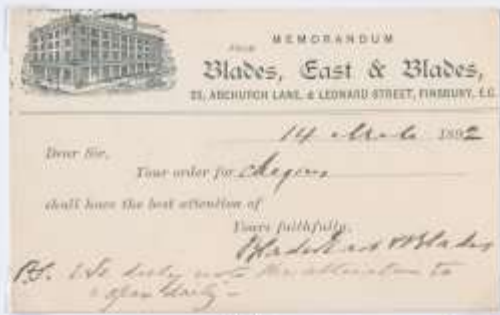 MEMORANDUM
FROM
Blades, East & Blades,
23, ABCHURCH LANE, & LEONARD STREET, FINSBURY, E.C.
14 March 1892
Dear Sir,
Your order for Cheques
shall have the best attention of
Yours faithfully,
Blades East & Blades
P.S. We duly note the alteration to